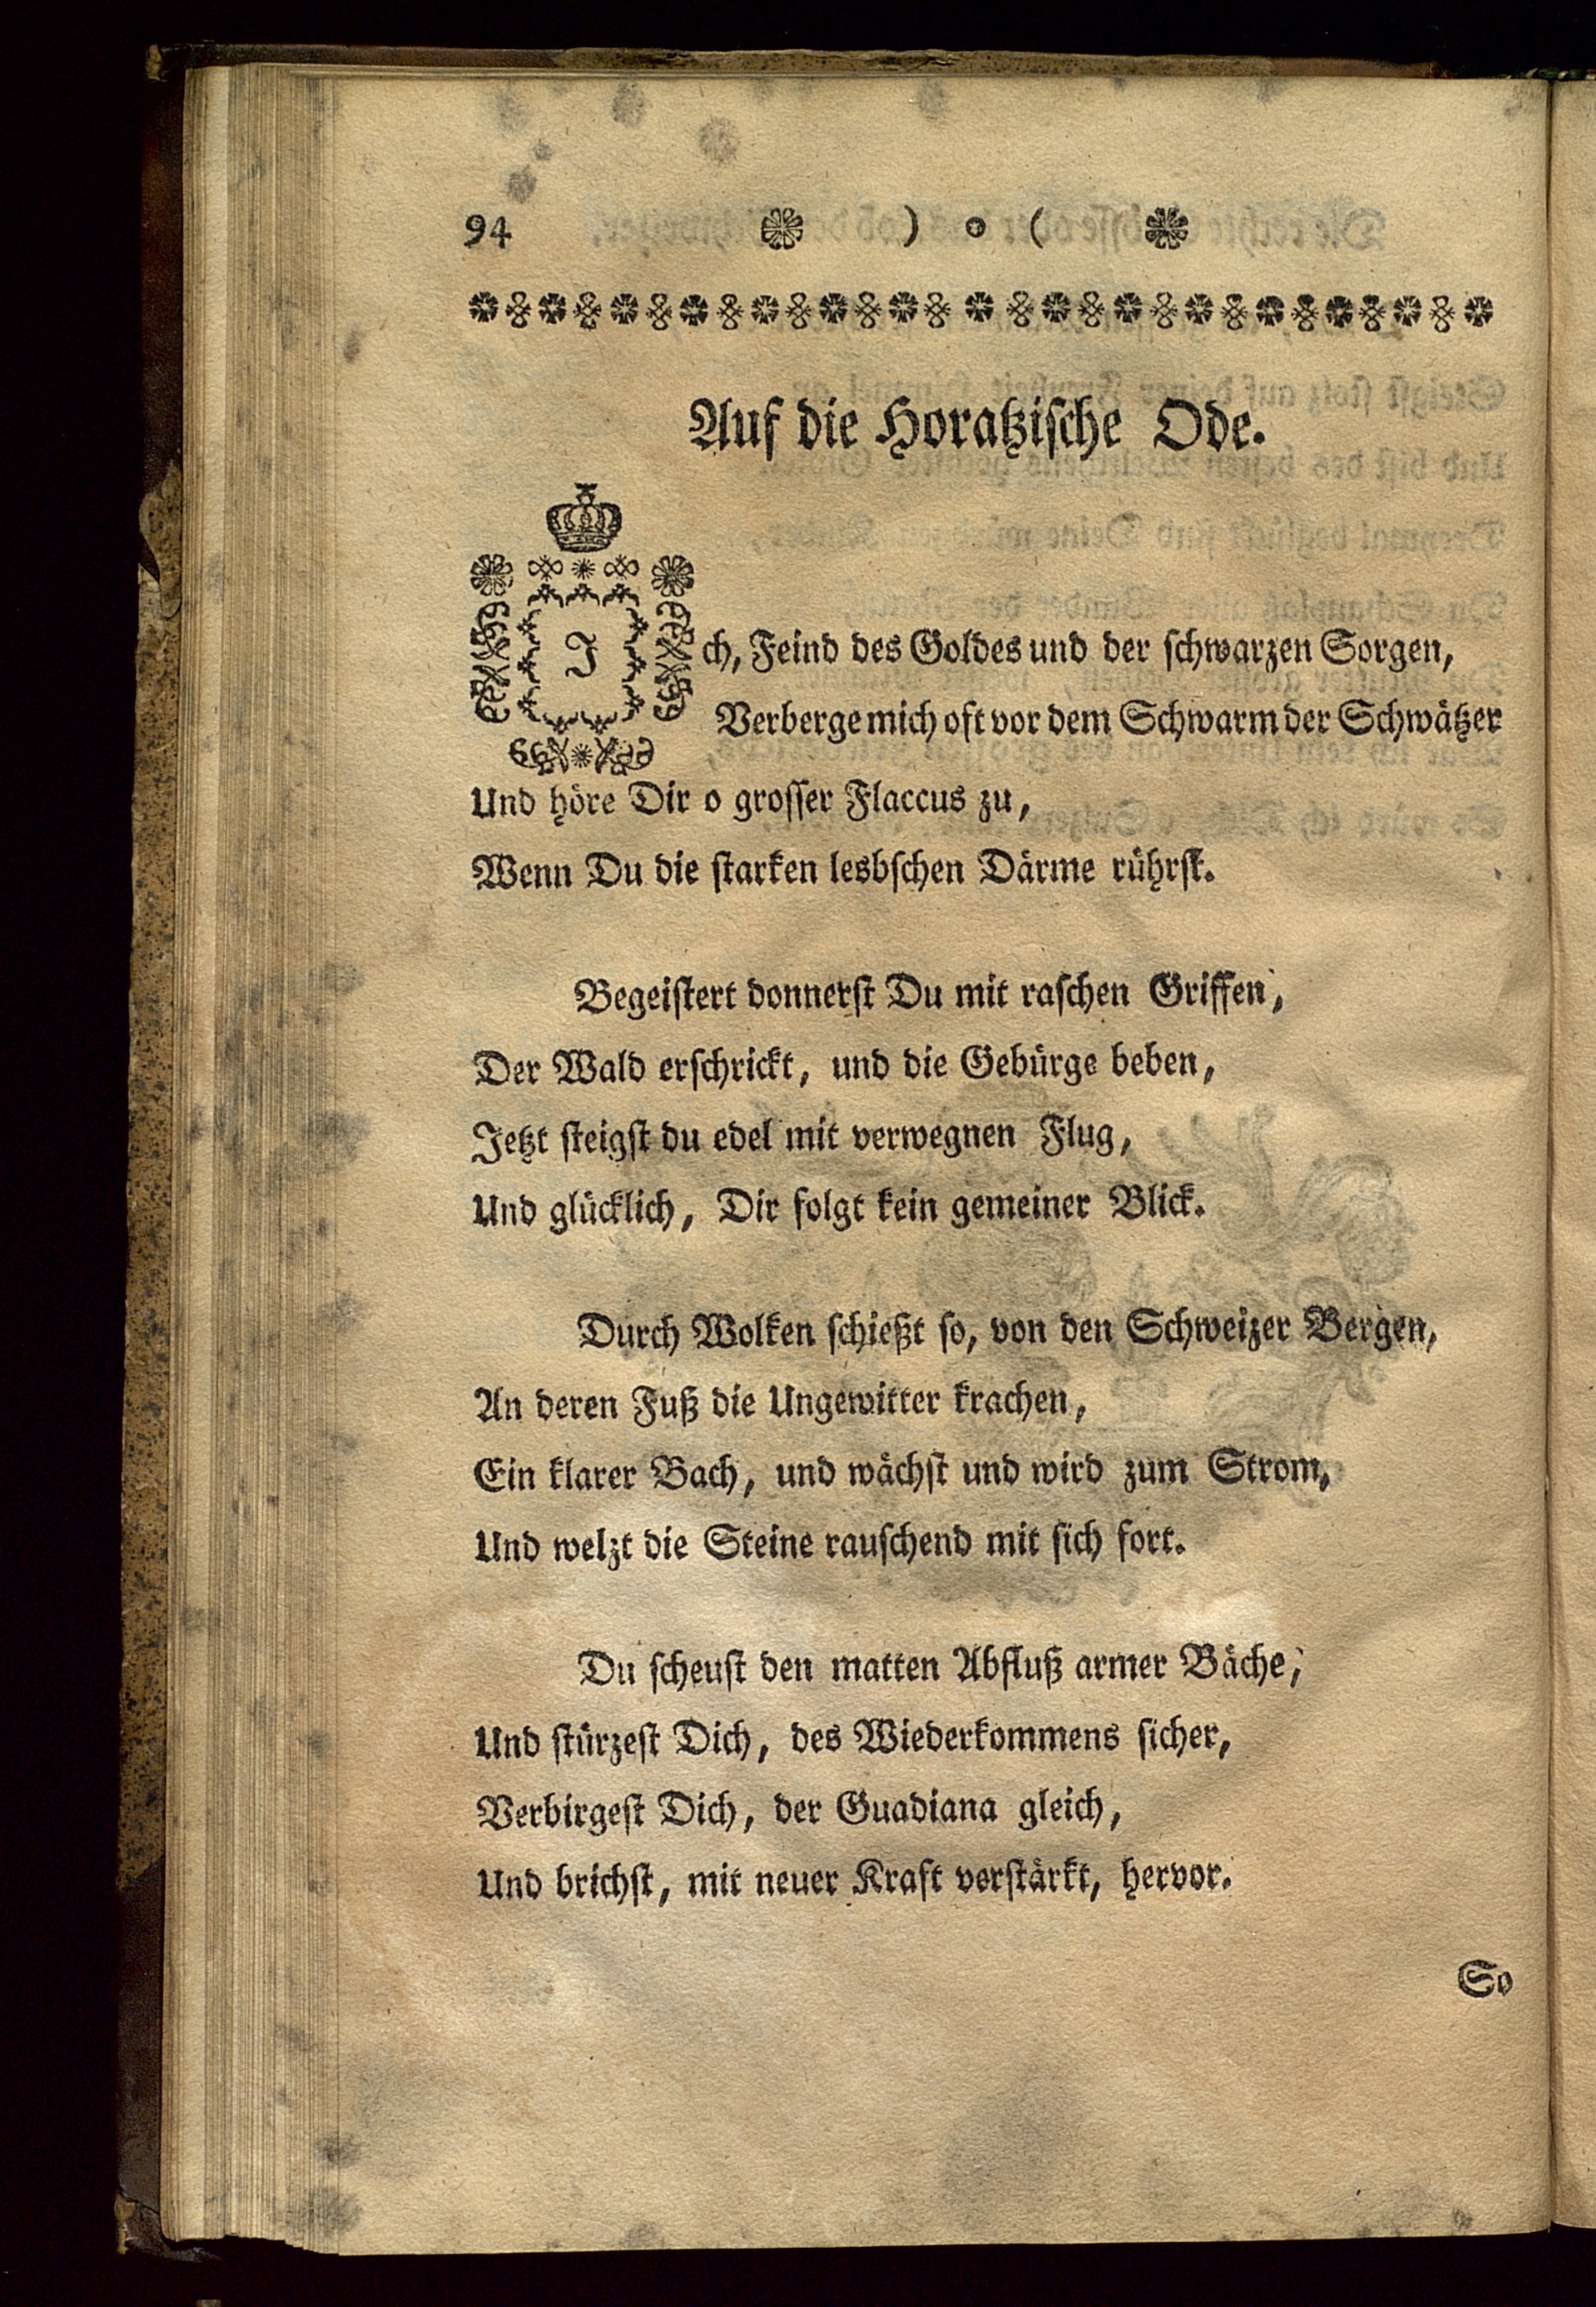 94 ) o (
Auf die Horatzische Ode.
Ich, Feind des Goldes und der schwarzen Sorgen,
Verberge mich oft vor dem Schwarm der Schwätzer
Und höre Dir o grosser Flaccus zu,
Wenn Du die starken lesbschen Därme rührst.
Begeistert donnerst Du mit raschen Griffen,
Der Wald erschrickt, und die Gebürge beben,
Jetzt steigst du edel mit verwegnen Flug,
Und glücklich, Dir folgt kein gemeiner Blick.
Durch Wolken schießt so, von den Schweizer Bergen,
An deren Fuß die Ungewitter krachen,
Ein klarer Bach, und wächst und wird zum Strom,
Und welzt die Steine rauschend mit sich fort.
Du scheust den matten Abfluß armer Bäche,
Und stürzest Dich, des Wiederkommens sicher,
Verbirgest Dich, der Guadiana gleich,
Und brichst, mit neuer Kraft verstärkt, hervor.
So